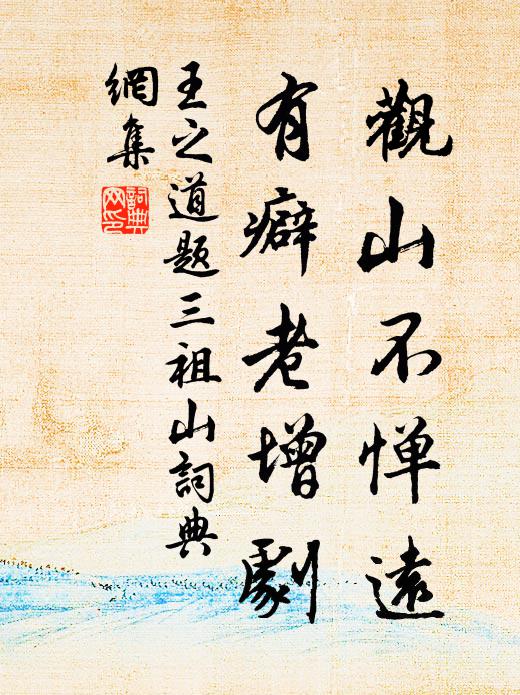 觀山不惮遠
有癖老增劇
王之道题三祖山詞典
網集
詞典
网印